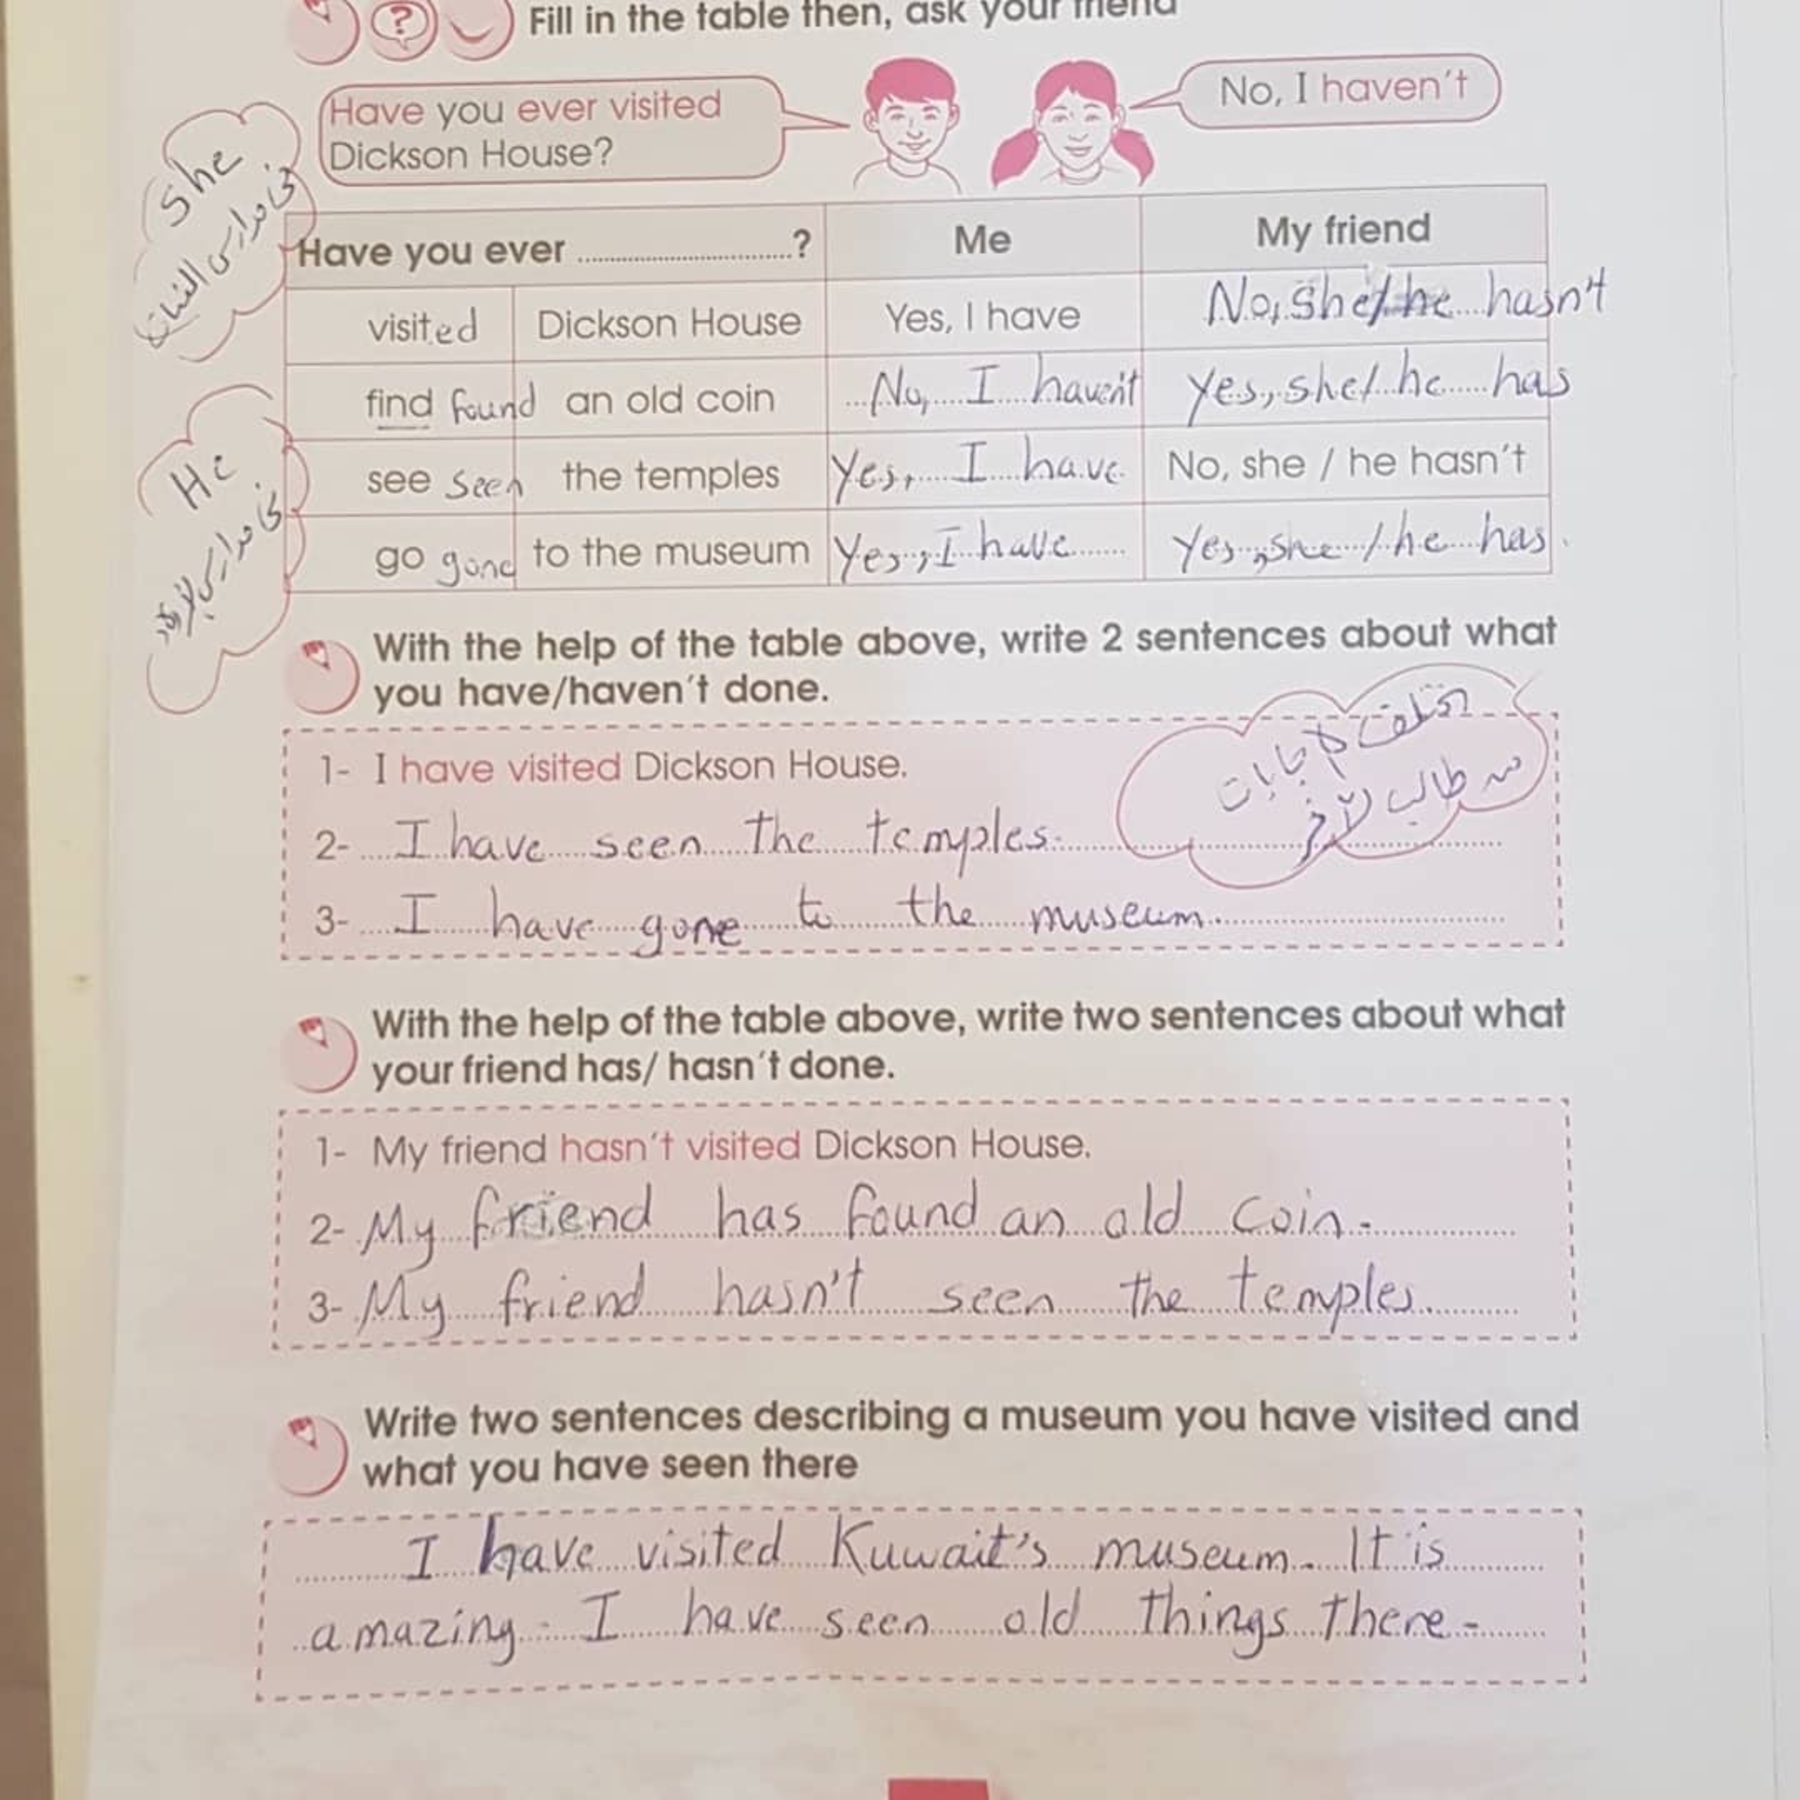 Fill in the table then, ask your friend
Have you ever visited
Dickson House?
No, I haven't
She
في مدارس البنات
Have you ever ..............................?
Me
My friend
visited Dickson House Yes, I have No, she/he hasn't
find found an old coin No, I haven't Yes, she/he has
see seen the temples Yes, I have No, she / he hasn't
go gone to the museum Yes, I have Yes, she/he has.
He
في مدارس الأولاد
With the help of the table above, write 2 sentences about what
you have/haven't done.
تختلف الإجابات
من طالب لآخر
1- I have visited Dickson House.
2- I have seen the temples.
3- I have gone to the museum.
With the help of the table above, write two sentences about what
your friend has/ hasn't done.
1- My friend hasn't visited Dickson House.
2- My friend has found an old coin.
3- My friend hasn't seen the temples.
Write two sentences describing a museum you have visited and
what you have seen there
I have visited Kuwait's museum. It is
amazing. I have seen old things there.